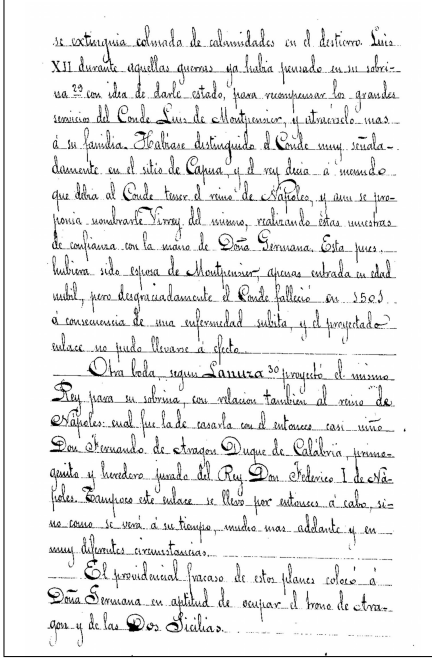 se extinguia colmada de calamidades en el destierro. Luis
XII durante aquellas guerras ya habia pensado en su sobri-
na 29 con idea de darle estado, para recompensar los grandes
servicios del Conde Luis de Montpensier, y atraerselo mas
á su familia. Habiase distinguido el Conde muy señala-
damente en el sitio de Capua, y el rey decia á menudo
que debia al Conde tener el reino de Nápoles, y aun se pro-
ponia nombrarle Virrey del mismo, realizando estas muestras
de confianza con la mano de Doña Germana. Esta pues,
hubiera sido esposa de Montpensier, apenas entrada en edad
nubil, pero desgraciadamente el Conde falleció en 1501
á consecuencia de una enfermedad subita, y el proyectado
enlace no pudo llevarse á efecto.
Otra boda, segun Lanuza 30 proyectó el mismo
Rey para su sobrina, con relacion tambien al reino de
Nápoles: cual fue la de casarla con el entonces casi niño
Don Fernando de Aragon Duque de Calábria, primo-
genito y heredero jurado del Rey Don Federico I de Ná-
poles. Tampoco este enlace se llevo por entonces á cabo, si-
no como se verá á su tiempo, mucho mas adelante y en
muy diferentes circunstancias.
El providencial fracaso de estos planes colocó á
Doña Germana en aptitud de ocupar el trono de Ara-
gon y de las Dos Sicilias.